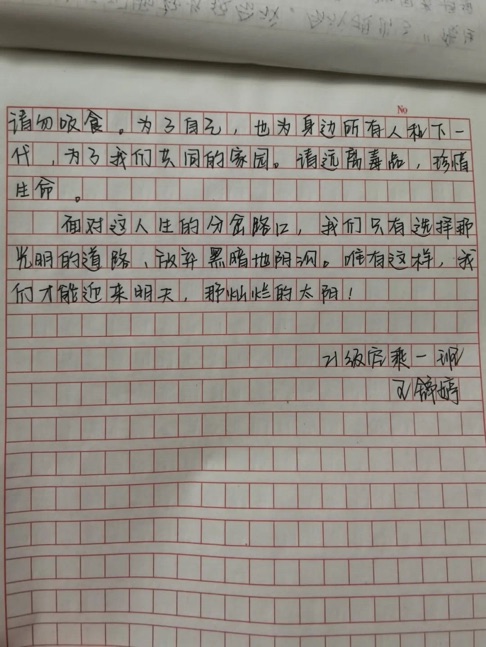 No
请勿吸食。为了自己，也为身边所有人和下一
代，为了我们共同的家园。请远离毒品，珍惜
生命。
面对这人生的分岔路口，我们只有选择那
光明的道路、放弃黑暗地阴洞。唯有这样，我
们才能迎来明天，那灿烂的太阳！
21级空乘一班
王锦婷